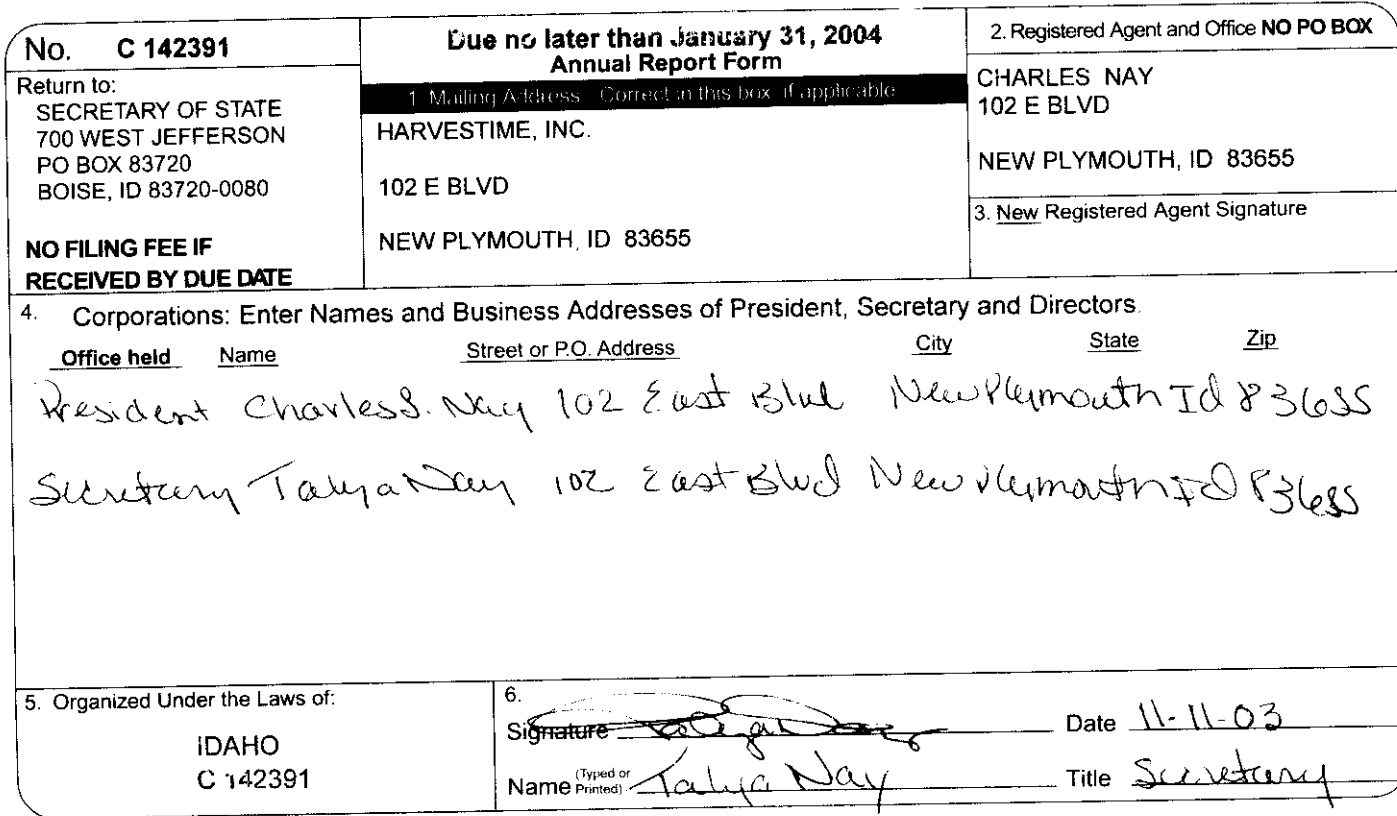 No. C 142391
Return to:
SECRETARY OF STATE
700 WEST JEFFERSON
PO BOX 83720
BOISE, ID 83720-0080
NO FILING FEE IF
RECEIVED BY DUE DATE
Due no later than January 31, 2004
Annual Report Form
1. Mailing Address Correct in this box if applicable
HARVESTIME, INC.
102 E BLVD
NEW PLYMOUTH, ID 83655
2. Registered Agent and Office NO PO BOX
CHARLES NAY
102 E BLVD
NEW PLYMOUTH, ID 83655
3. New Registered Agent Signature
4. Corporations: Enter Names and Business Addresses of President, Secretary and Directors.
Office held Name Street or P.O. Address City State Zip
President Charles S. Nay 102 East Blvd New Plymouth Id 83655
Secretary Talya Nay 102 East Blvd New Plymouth Id 83655
5. Organized Under the Laws of:
IDAHO
C 142391
6.
Signature Talya Nay Date 11-11-03
Name (Typed or Printed) Talya Nay Title Secretary